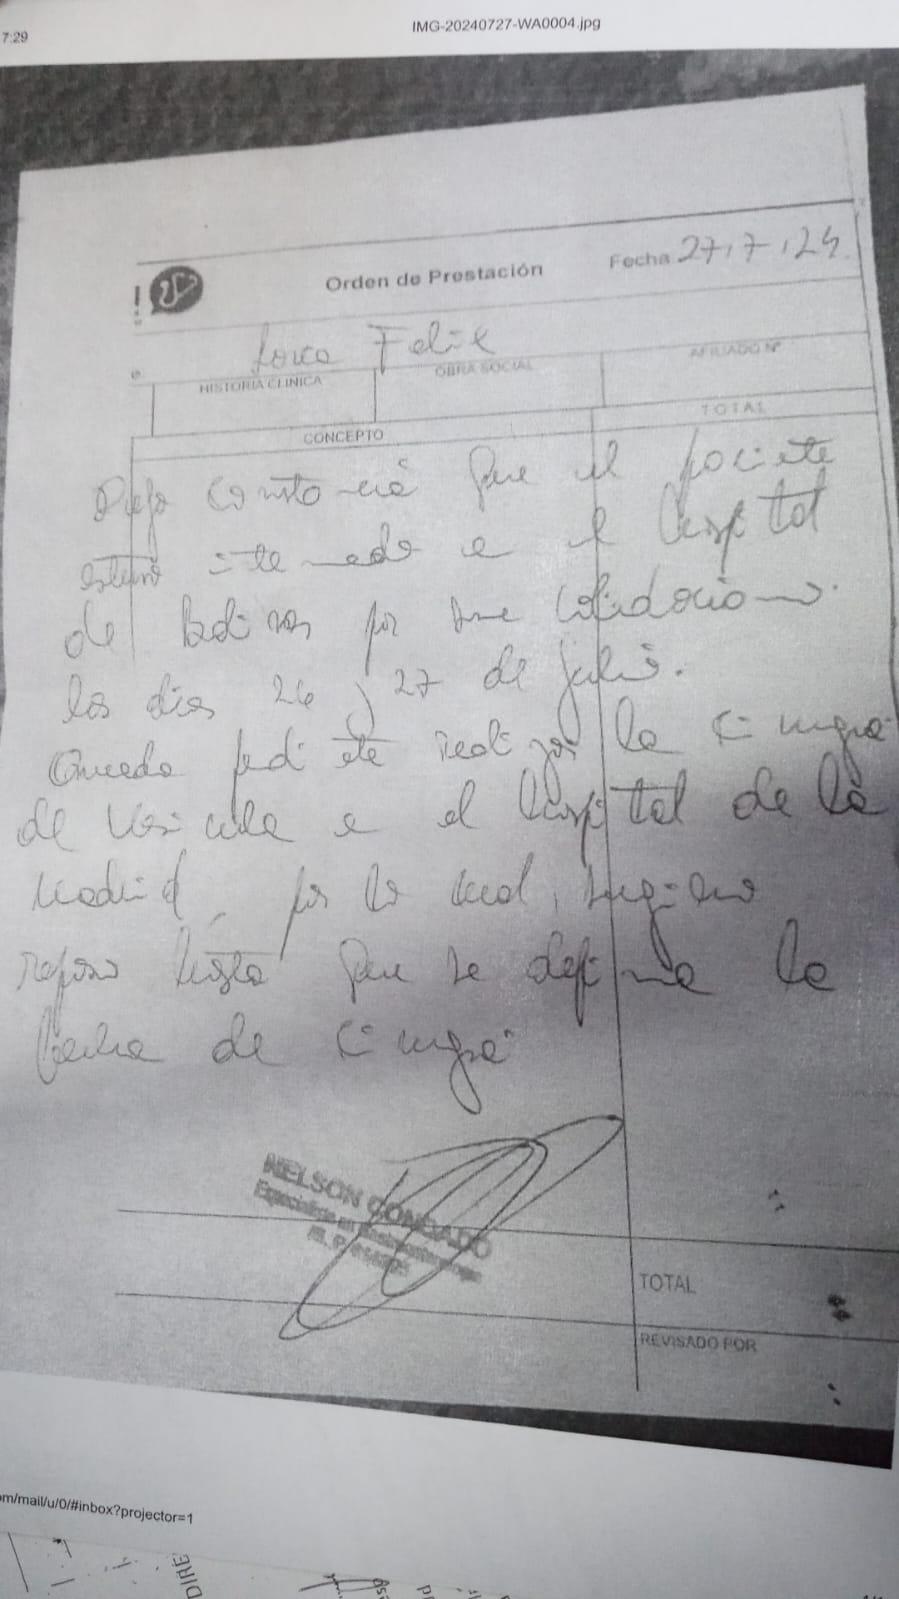 7:29
IMG-20240727-WA0004.jpg
Orden de Prestación
Fecha 27/7/24
Felix
HISTORIA CLINICA
OBRA SOCIAL
AFILIADO Nº
CONCEPTO
TOTAL
Dejo constancia que el paciente
estuvo internado en el hospital
de por
los días 26 y 27 de julio.
Queda pendiente realizar la cirugía
de vesícula en el hospital de la
por lo cual, sugiero
reposo hasta que se defina la
fecha de cirugía
NELSON CONDADO
Especialista en
M.P.
TOTAL
REVISADO POR
om/mail/u/0/#inbox?projector=1
DIRE